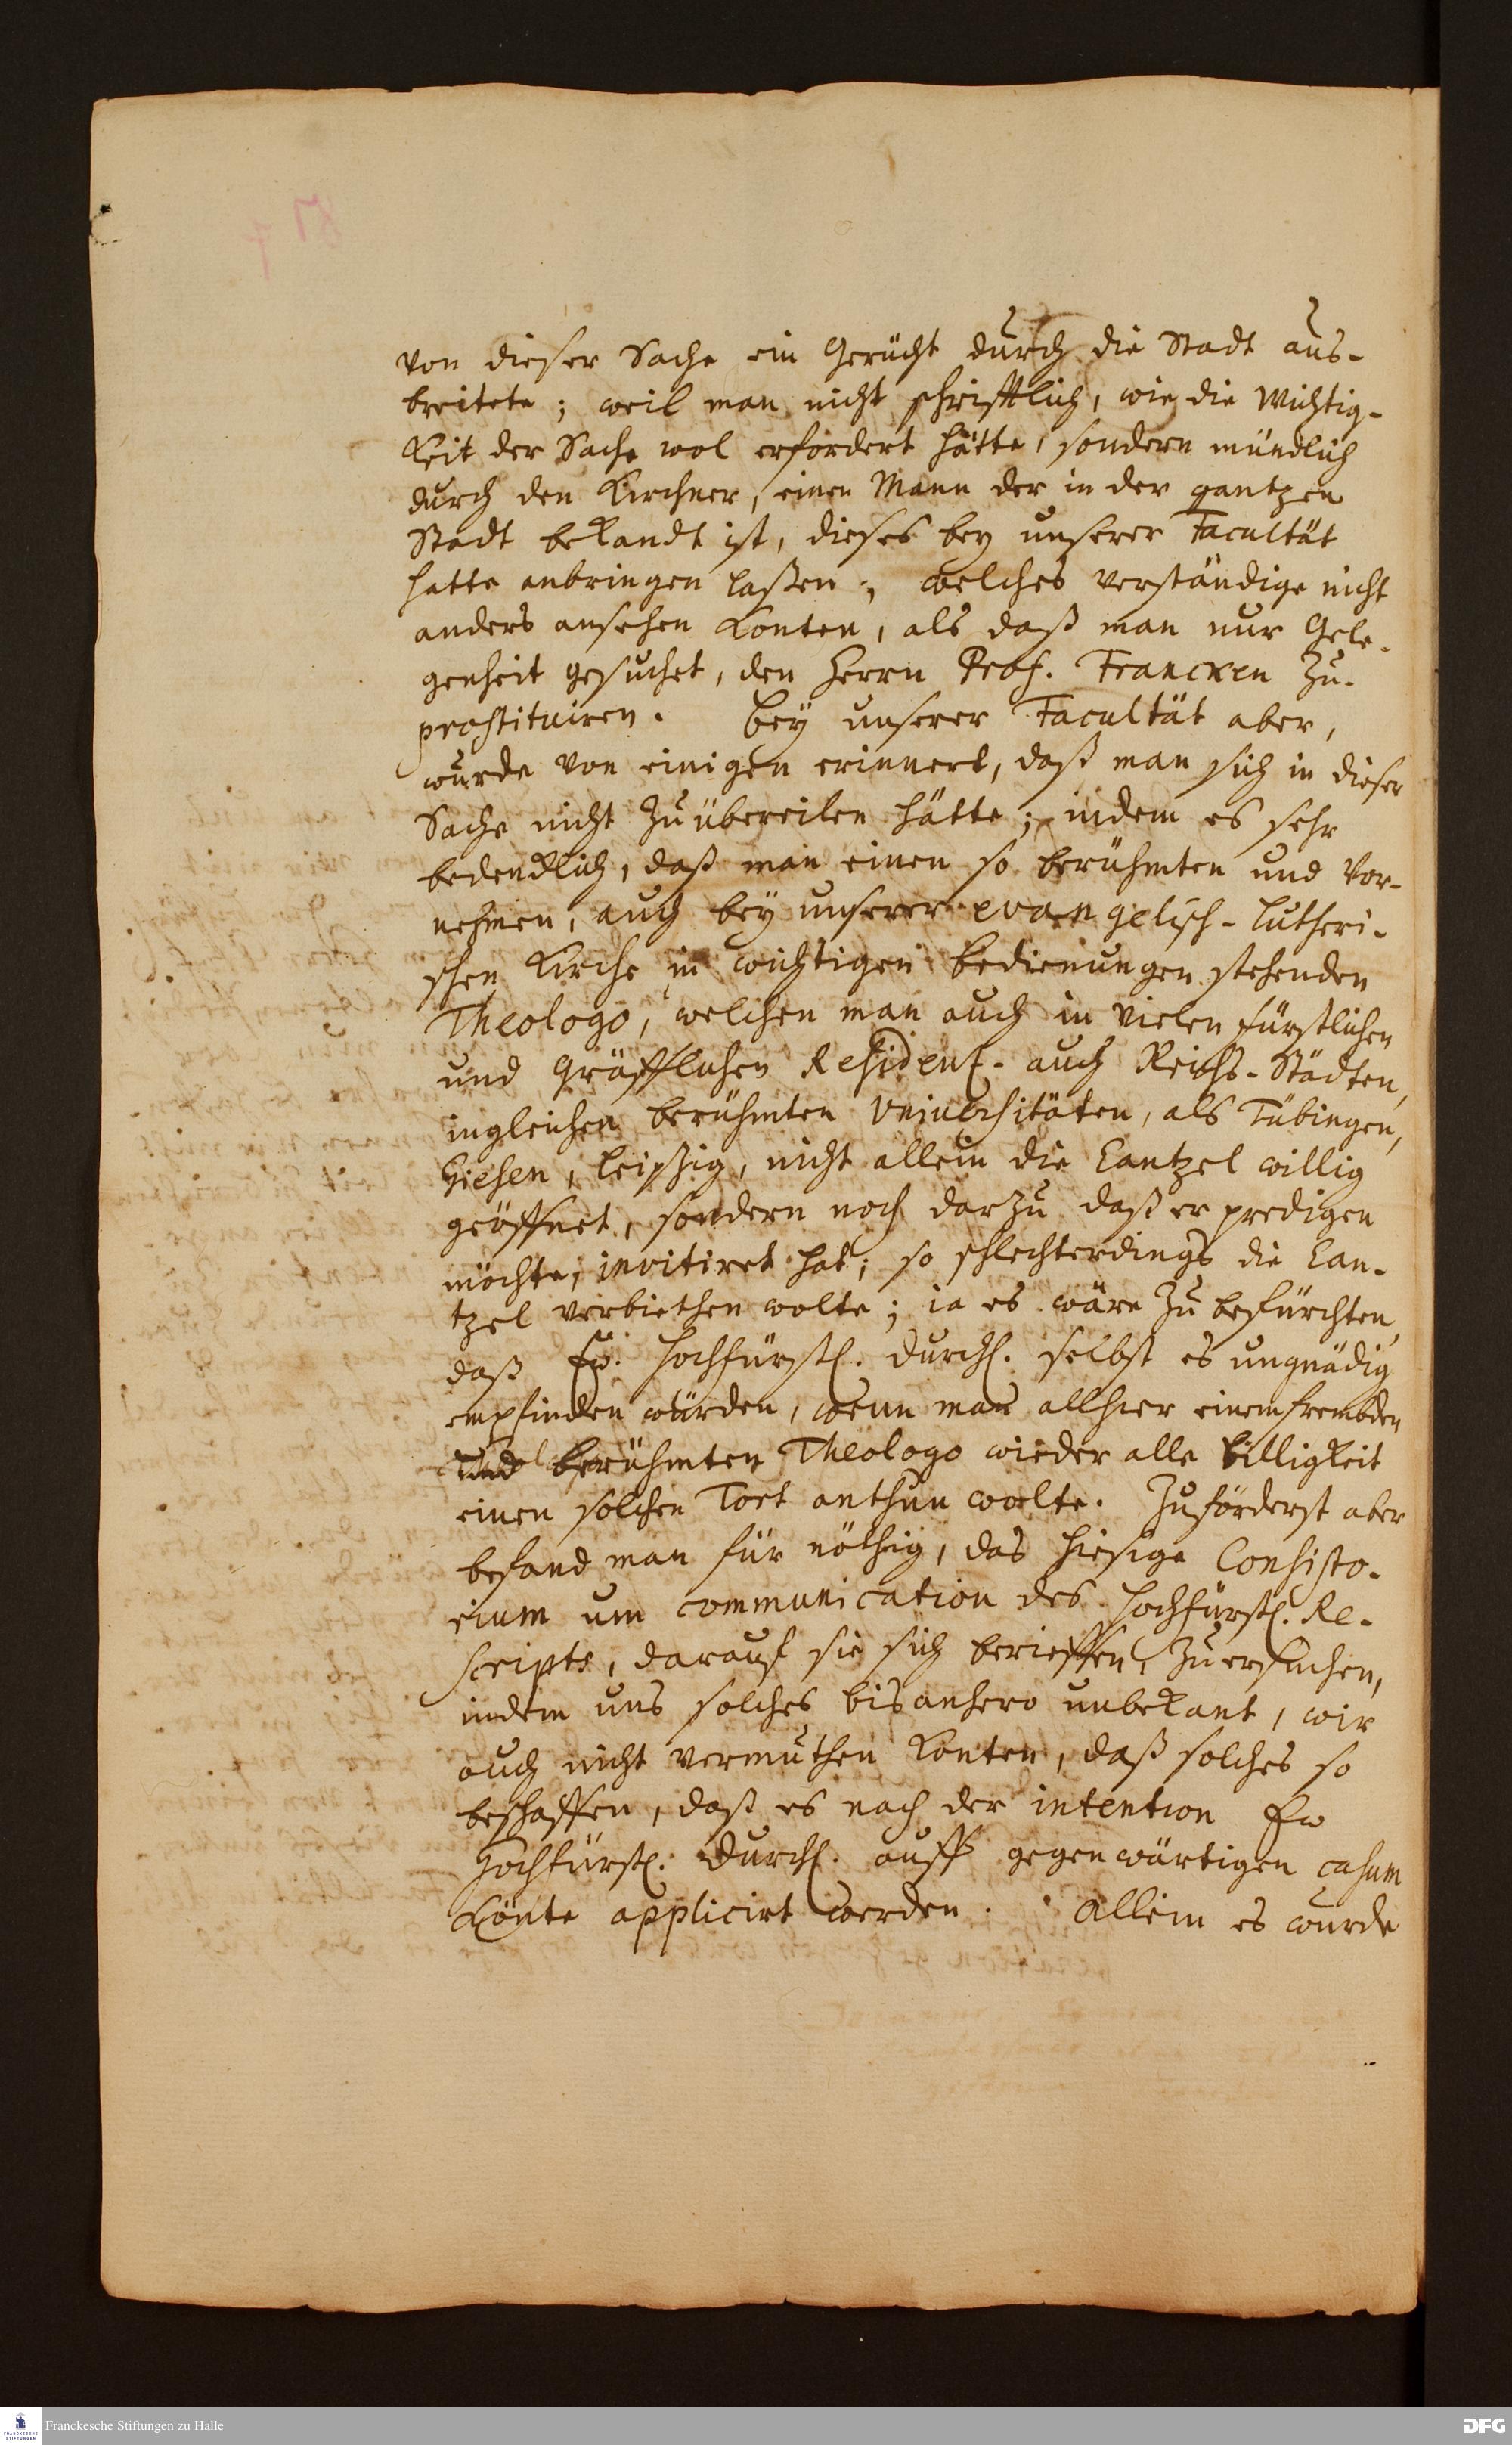 von dieser Sache ein Gerücht durch die Stadt aus-
breitete; weil man nicht schrifftlich, wie die Wichtig-
keit der Sache wol erfordert hätte, sondern mündlich
durch den Kirchner, einen Mann der in der gantzen
Stadt bekandt ist, dieses bey unserer Facultät
hatte anbringen laßen; welches verständige nicht
anders ansehen konten, als daß man nur Gele-
genheit gesuchet, den Herrn Prof. Francken zu-
prostituiren. Bey unserer Facultät aber,
wurde von einigen erinnert, daß man sich in dieser
Sache nicht zu übereilen hätte; indem es sehr
bedencklich, daß man einen so berühmten und vor-
nehmen, auch bey unserer evangelisch-lutheri-
schen Kirche in wichtigen Bedienungen stehenden
Theologo, welchen man auch in vielen fürstlichen
und Gräfflichen Residentz- auch Reichs-Städten,
ingleichen berühmten Universitäten, als Tübingen,
Giesen, Leipzig, nicht allein die Cantzel willig
geöffnet, sondern noch darzu daß er predigen
möchte, invitiret hat; so schlechterdings die Can-
tzel verbiethen wolte; ia es wäre zu befürchten,
daß Ew. Hochfürstl. Durchl. selbst es ungnädig
empfinden würden, wenn man allhier einem frembden
und berühmten Theologo wieder alle Billigkeit
einen solchen Tort anthun wolte. Zuförderst aber
befand man für nöthig, das hiesige Consisto-
rium um communication des Hochfürstl. Re-
scripts, darauf sie sich berieffen, zu ersuchen,
indem uns solches bis anhero unbekant, wir
auch nicht vermuthen konten, daß solches so
beschaffen, daß es nach der intention Ew
Hochfürstl. Durchl. auff gegenwärtigen casum
könte applicirt werden. Allein es wurde
Franckesche Stiftungen zu Halle
DFG